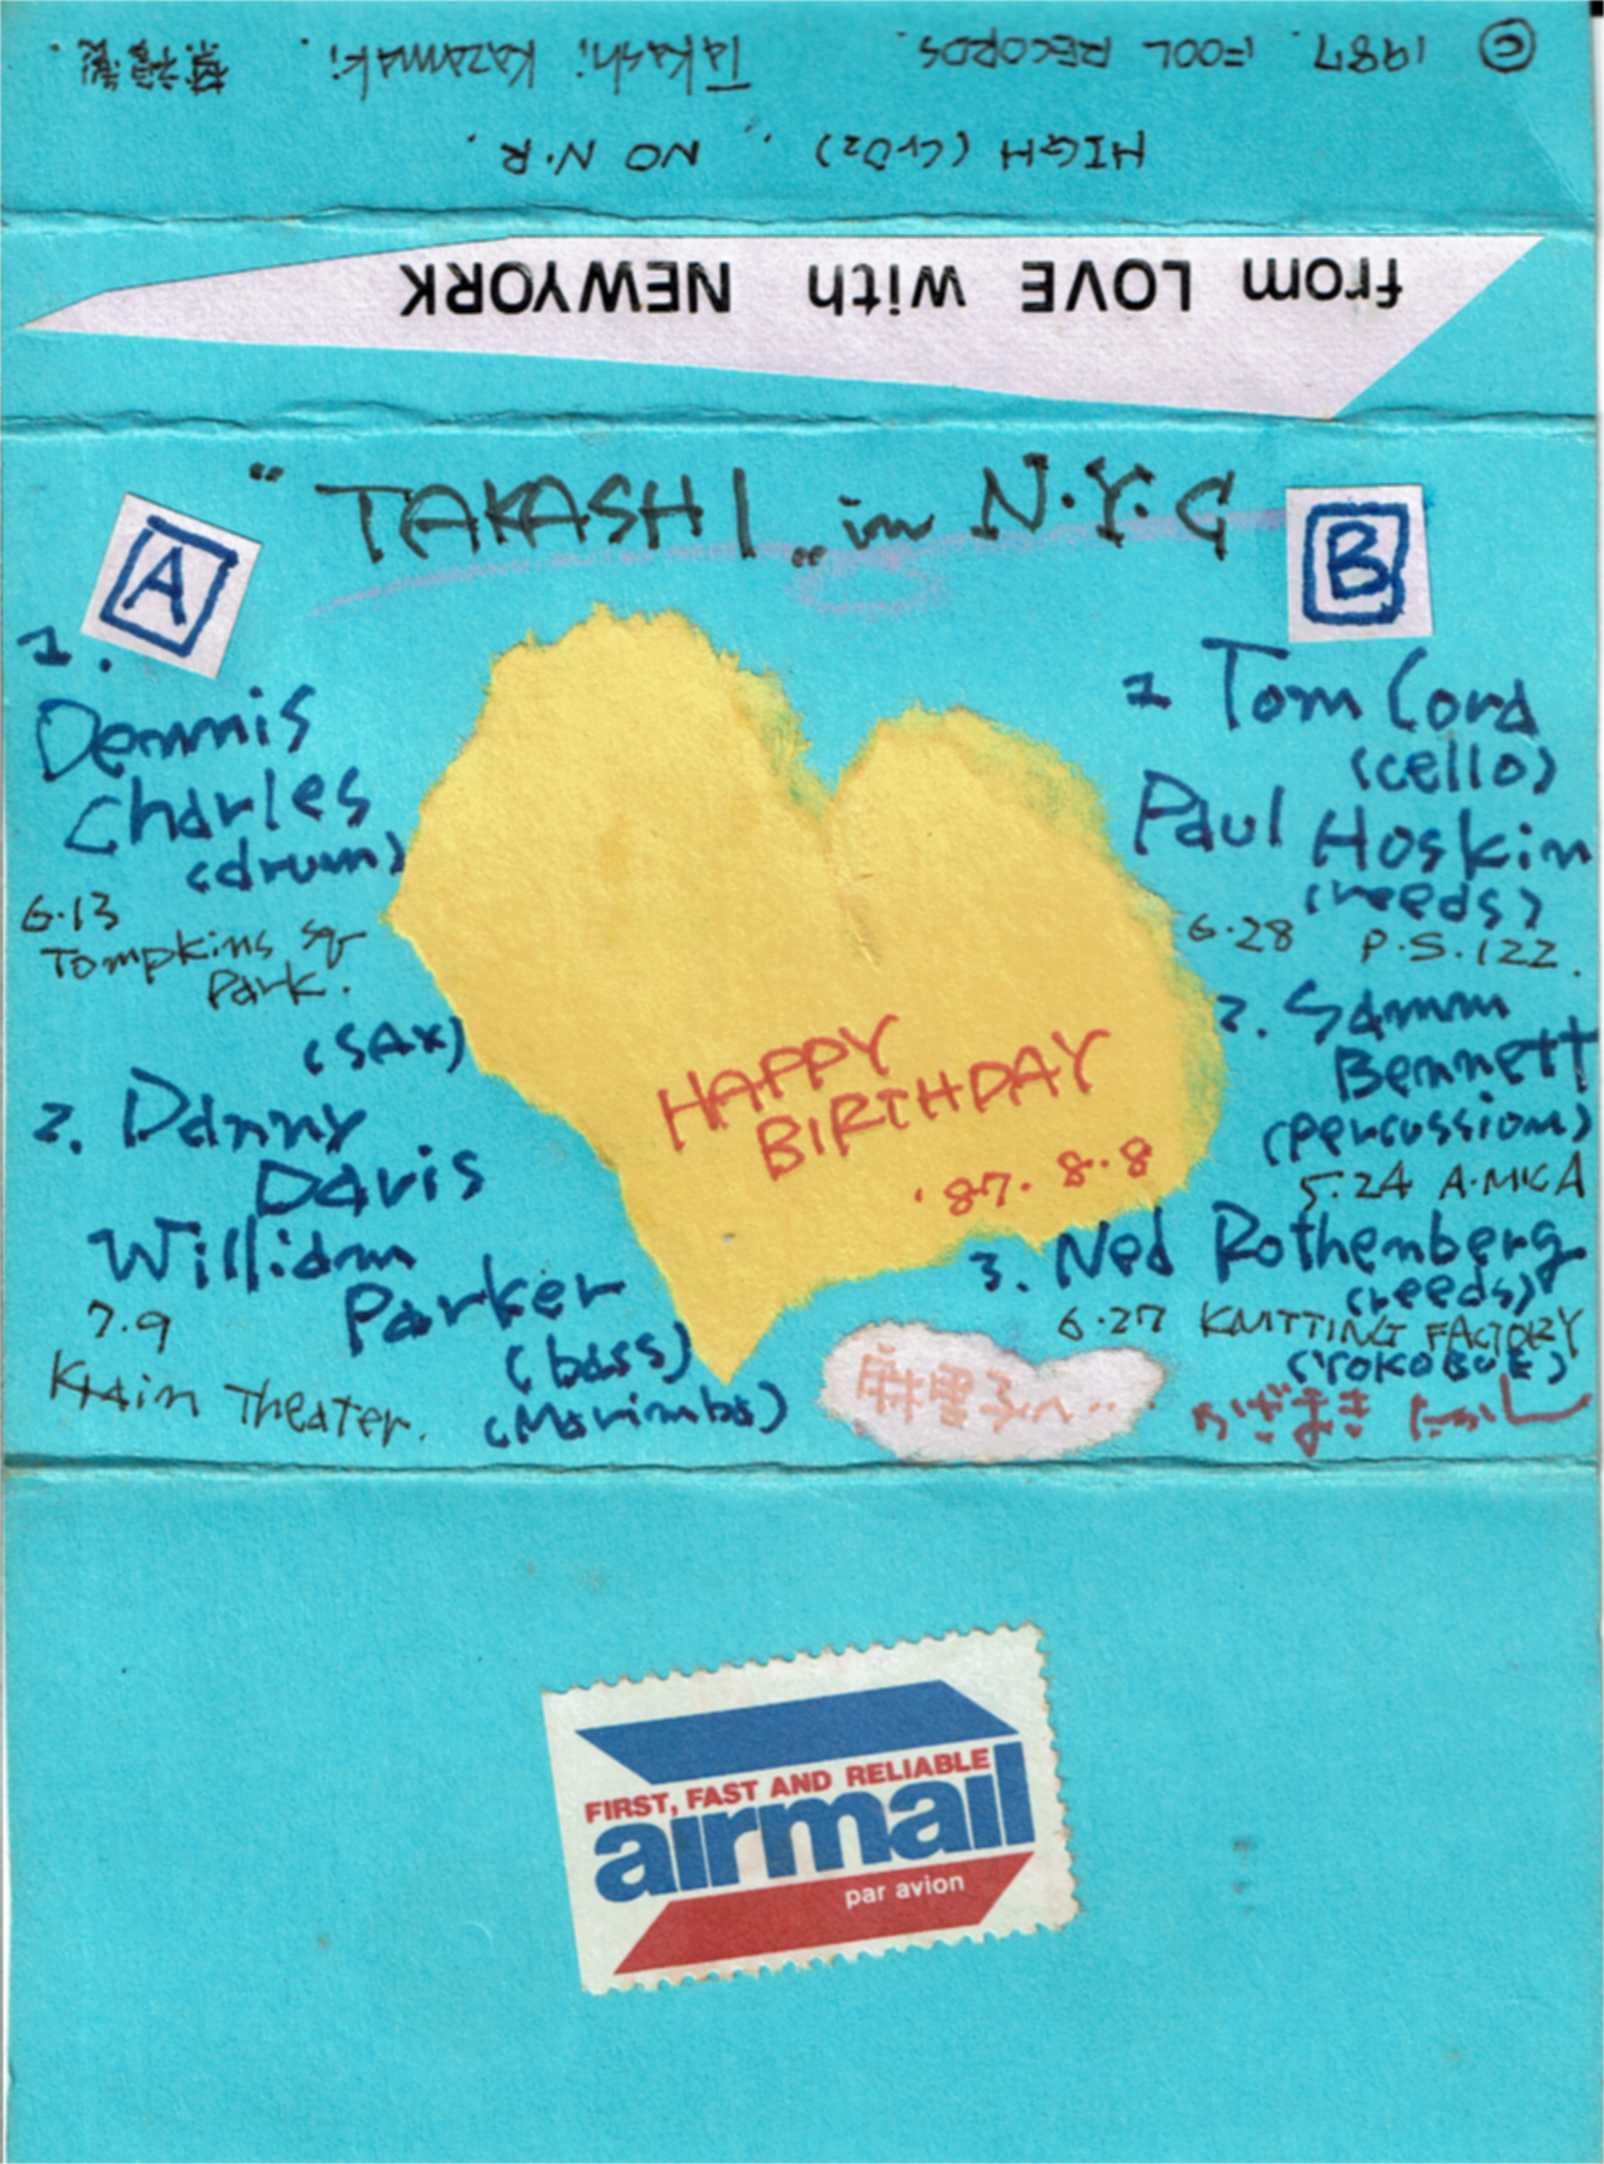 © 1987. FOOL RECORDS. Takashi Kazamaki. 禁複製.
HIGH (CrO2) , NO N.R.
from LOVE with NEWYORK
"TAKASHI„ in N.Y.C
A
1.
Dennis
Charles
(drum)
6.13
Tompkins Sq
Park.
(SAX)
2. Danny
Davis
William
Parker
(bass)
7.9
Krain Theater.
(Marimba)
HAPPY
BIRTHDAY
'87. 8.8
B
1 Tom Cora
(cello)
Paul Hoskin
(reeds)
6.28 P.S.122.
2. Samm
Bennett
(percussion)
5.24 A.MICA
3. Ned Rothenberg
(reeds)
6.27 KNITTING FACTORY
(YOKOBUE)
麻里子へ...
かざまき たかし
FIRST, FAST AND RELIABLE
airmail
par avion